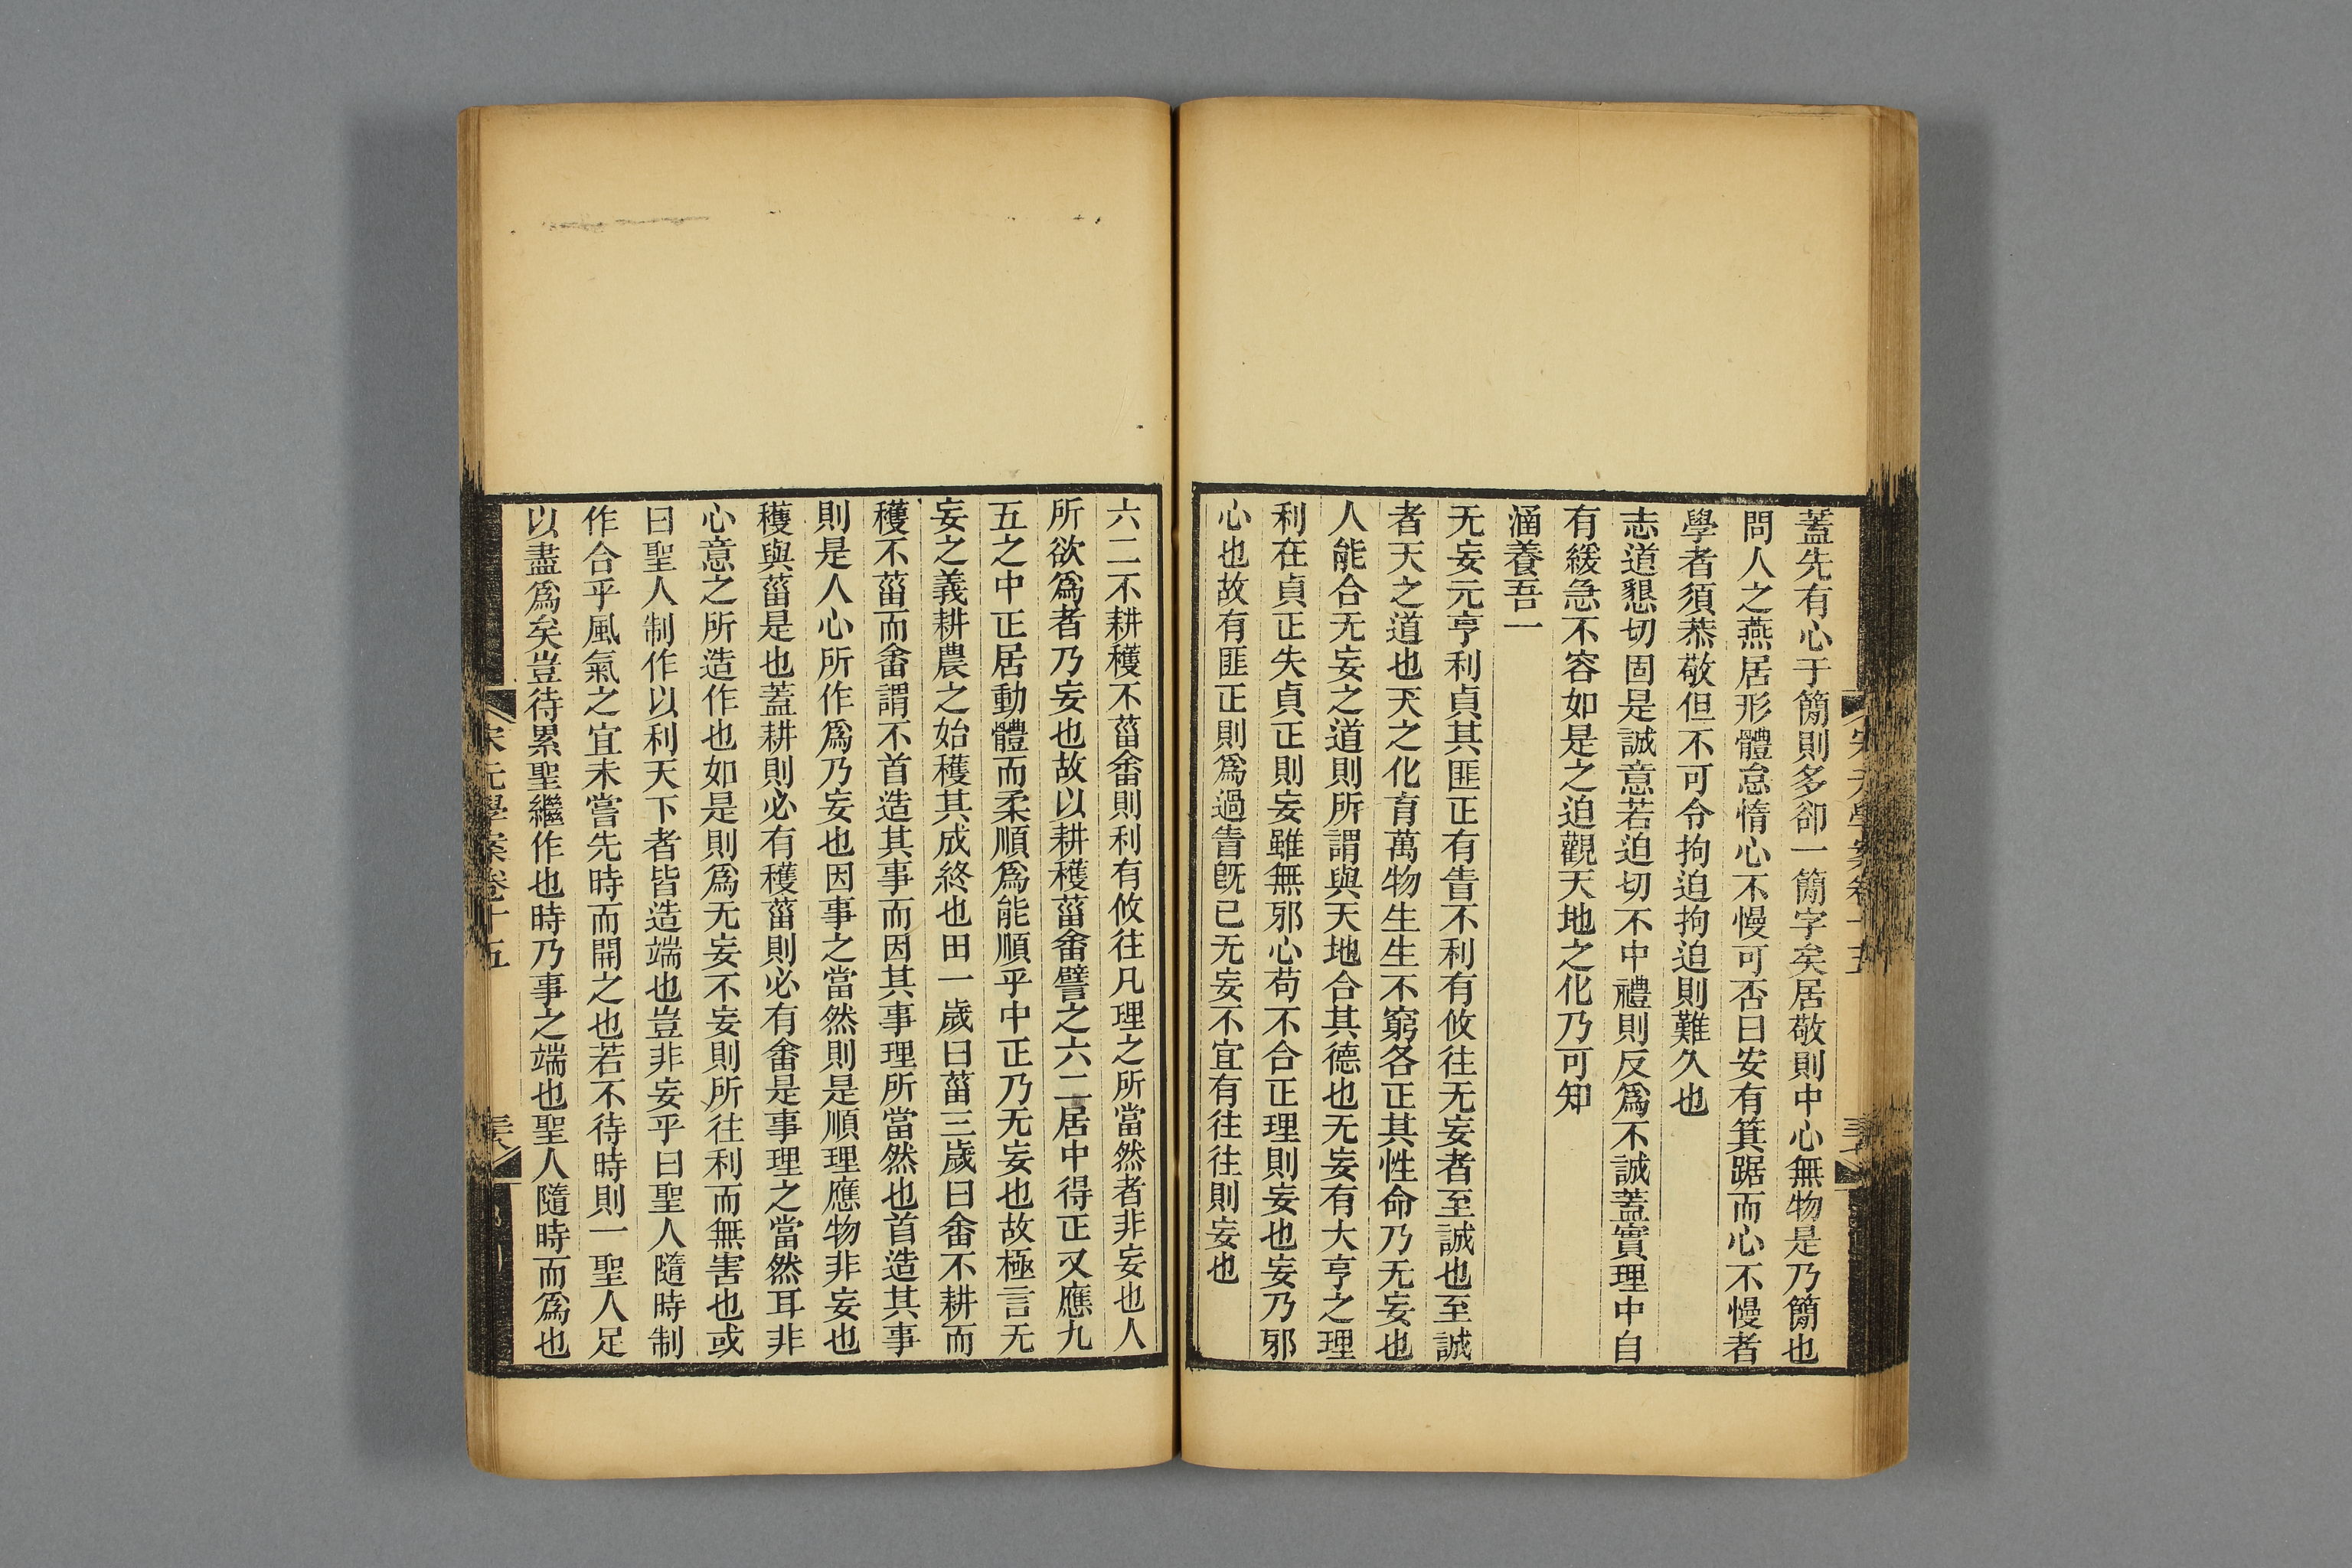 蓋先有心于簡則多卻一簡字矣居敬則中心無物是乃簡也
問人之燕居形體怠惰心不慢可否曰安有箕踞而心不慢者
學者須恭敬但不可令拘迫拘迫則難久也
志道懇切固是誠意若迫切不中禮則反爲不誠蓋實理中自
有緩急不容如是之迫觀天地之化乃可知
涵養吾一
无妄元亨利貞其匪正有眚不利有攸往无妄者至誠也至誠
者天之道也天之化育萬物生生不窮各正其性命乃无妄也
人能合无妄之道則所謂與天地合其德也无妄有大亨之理
利在貞正失貞正則妄雖無邪心苟不合正理則妄也妄乃邪
心也故有匪正則爲過眚旣已无妄不宜有往往則妄也
宋元學案卷十五
六二不耕穫不菑畬則利有攸往凡理之所當然者非妄也人
所欲爲者乃妄也故以耕穫菑畬譬之六二居中得正又應九
五之中正居動體而柔順爲能順乎中正乃无妄也故極言无
妄之義耕農之始穫其成終也田一歲曰菑三歲曰畬不耕而
穫不菑而畬謂不首造其事而因其事理所當然也首造其事
則是人心所作爲乃妄也因事之當然則是順理應物非妄也
穫與菑是也蓋耕則必有穫菑則必有畬是事理之當然耳非
心意之所造作也如是則爲无妄不妄則所往利而無害也或
曰聖人制作以利天下者皆造端也豈非妄乎曰聖人隨時制
作合乎風氣之宜未嘗先時而開之也若不待時則一聖人足
以盡爲矣豈待累聖繼作也時乃事之端也聖人隨時而爲也
宋元學案卷十五